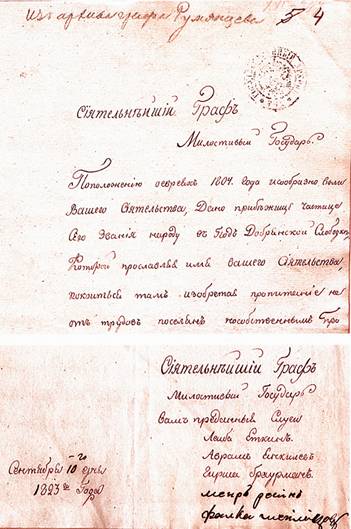 Изъ архива графа Румянцева
4
Сіятельнѣйшій Графъ
Милостивый Государь.
Поположению оевреяхъ 1804. года исообразно воли
Вашего Сиятельства, Дано прибѣжище частице
Сего Звания народу въ Ново Добрянской Слободѣ,
Которой прославляя имя вашего Сиятельства,
покоиться тамъ изобретая пропитание не
отъ трудовъ поселянъ нособственнымъ Про
Сіятельнѣйшій Графъ
Милостивый Государь
Вамъ преданныя Слуги
Лейба Еткинъ.
Аврамъ
Гирша
Сентября 10-го дня
1823го Года